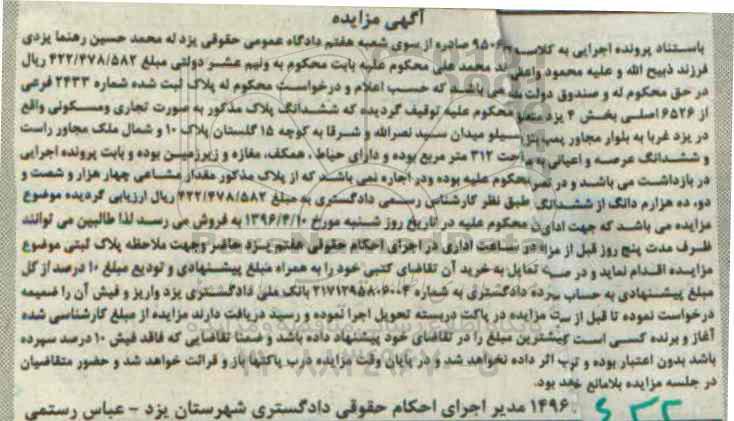 آگهی مزایده
باستناد پرونده اجرایی به کلاسه صادره از سوی شعبه هفتم دادگاه عمومی حقوقی یزد له محمد حسین رهنما یزدی
فرزند ذبیح الله و علیه محمود واعظی محمد علی محکوم علیه بابت محکوم به ونیم عشر دولتی مبلغ ۴۲۲/۴۷۸/۵۸۲ ریال
در حق محکوم له و صندوق دولت می باشد که حسب اعلام و درخواست محکوم له پلاک ثبت شده شماره ۲۴۳۳ فرعی
از ۶۵۲۶ اصلی بخش ۴ یزد متعلق محکوم علیه توقیف گردیده که ششدانگ پلاک مذکور به صورت تجاری ومسکونی واقع
در یزد غربا به بلوار مجاور پمپ بنزین سیلو میدان سید نصرالله و شرقا به کوچه ۱۵ گلستان پلاک ۱۰ و شمال ملک مجاور راست
و ششدانگ عرصه و اعیانی به مساحت ۳۱۲ متر مربع بوده و دارای حیاط، همکف، مغازه و زیرزمین بوده و بابت پرونده اجرایی
در بازداشت می باشد و در تصرف محکوم علیه بوده ودر اجاره نمی باشد که از پلاک مذکور مقدار مشاعی چهار هزار و شصت و
دو، ده هزارم دانگ از ششدانگ طبق نظر کارشناس رسمی دادگستری به مبلغ ۴۲۲/۴۷۸/۵۸۲ ریال ارزیابی گردیده موضوع
مزایده می باشد که جهت ادای محکوم علیه در تاریخ روز شنبه مورخ ۱۳۹۶/۴/۱۰ به فروش می رسد لذا طالبین می توانند
ظرف مدت پنج روز قبل از مزایده در ساعت اداری در اجرای احکام حقوقی هفتم یزد حاضر وجهت ملاحظه پلاک ثبتی موضوع
مزایده اقدام نماید و در صورت تمایل به خرید آن تقاضای کتبی خود را به همراه مبلغ پیشنهادی و تودیع مبلغ ۱۰ درصد از کل
مبلغ پیشنهادی به حساب سپرده دادگستری به شماره بانک ملی دادگستری یزد واریز و فیش آن را ضمیمه
درخواست نموده تا قبل از مزایده در پاکت دربسته تحویل اجرا نموده و رسید دریافت دارند مزایده از مبلغ کارشناسی شده
آغاز و برنده کسی است که بیشترین مبلغ را در تقاضای خود پیشنهاد داده باشد و ضمنا تقاضایی که فاقد فیش ۱۰ درصد سپرده
باشد بدون اعتبار بوده و ترتیب اثر داده نخواهد شد و در پایان وقت مزایده درب پاکتها باز و قرائت خواهد شد و حضور متقاضیان
در جلسه مزایده بلامانع خواهد بود.
۱۴۹۶ مدیر اجرای احکام حقوقی دادگستری شهرستان یزد - عباس رستمی